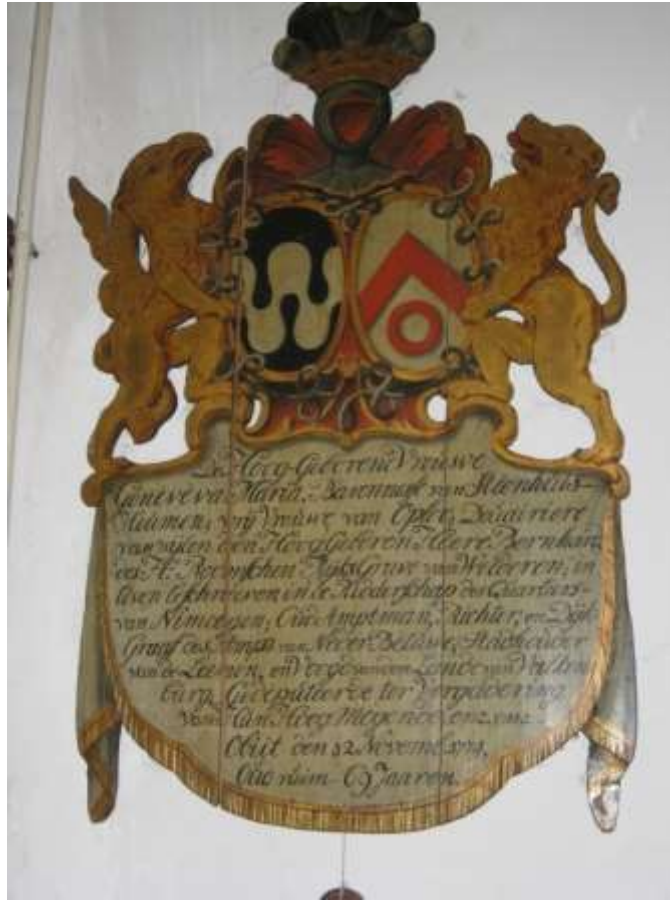 De Hoog Geboren Vrouwe
Geneveva Maria, Baronnesse van Steenhuis
vrÿ Vrouwe van Oploo, Douairiere
van wÿlen den Hoog Geboren Heere Bernhard
des H. Roomschen Rÿks Grave van Welderen, in
leven beschreven in de Ridderschap des Quartiers
van Nimwegen, Oud Amptman, Richter, en Dÿk
Graaf des Ampts van Neder Betuwe, Stadhouder
van de Leenen, en Lande van Valken
burg, Gedeputeerde ter Vergadering
van Haar Hoog Mogende enz. enz.
Obiit den 12 Novemb. 1774,
Oud ruim 69 Jaaren.